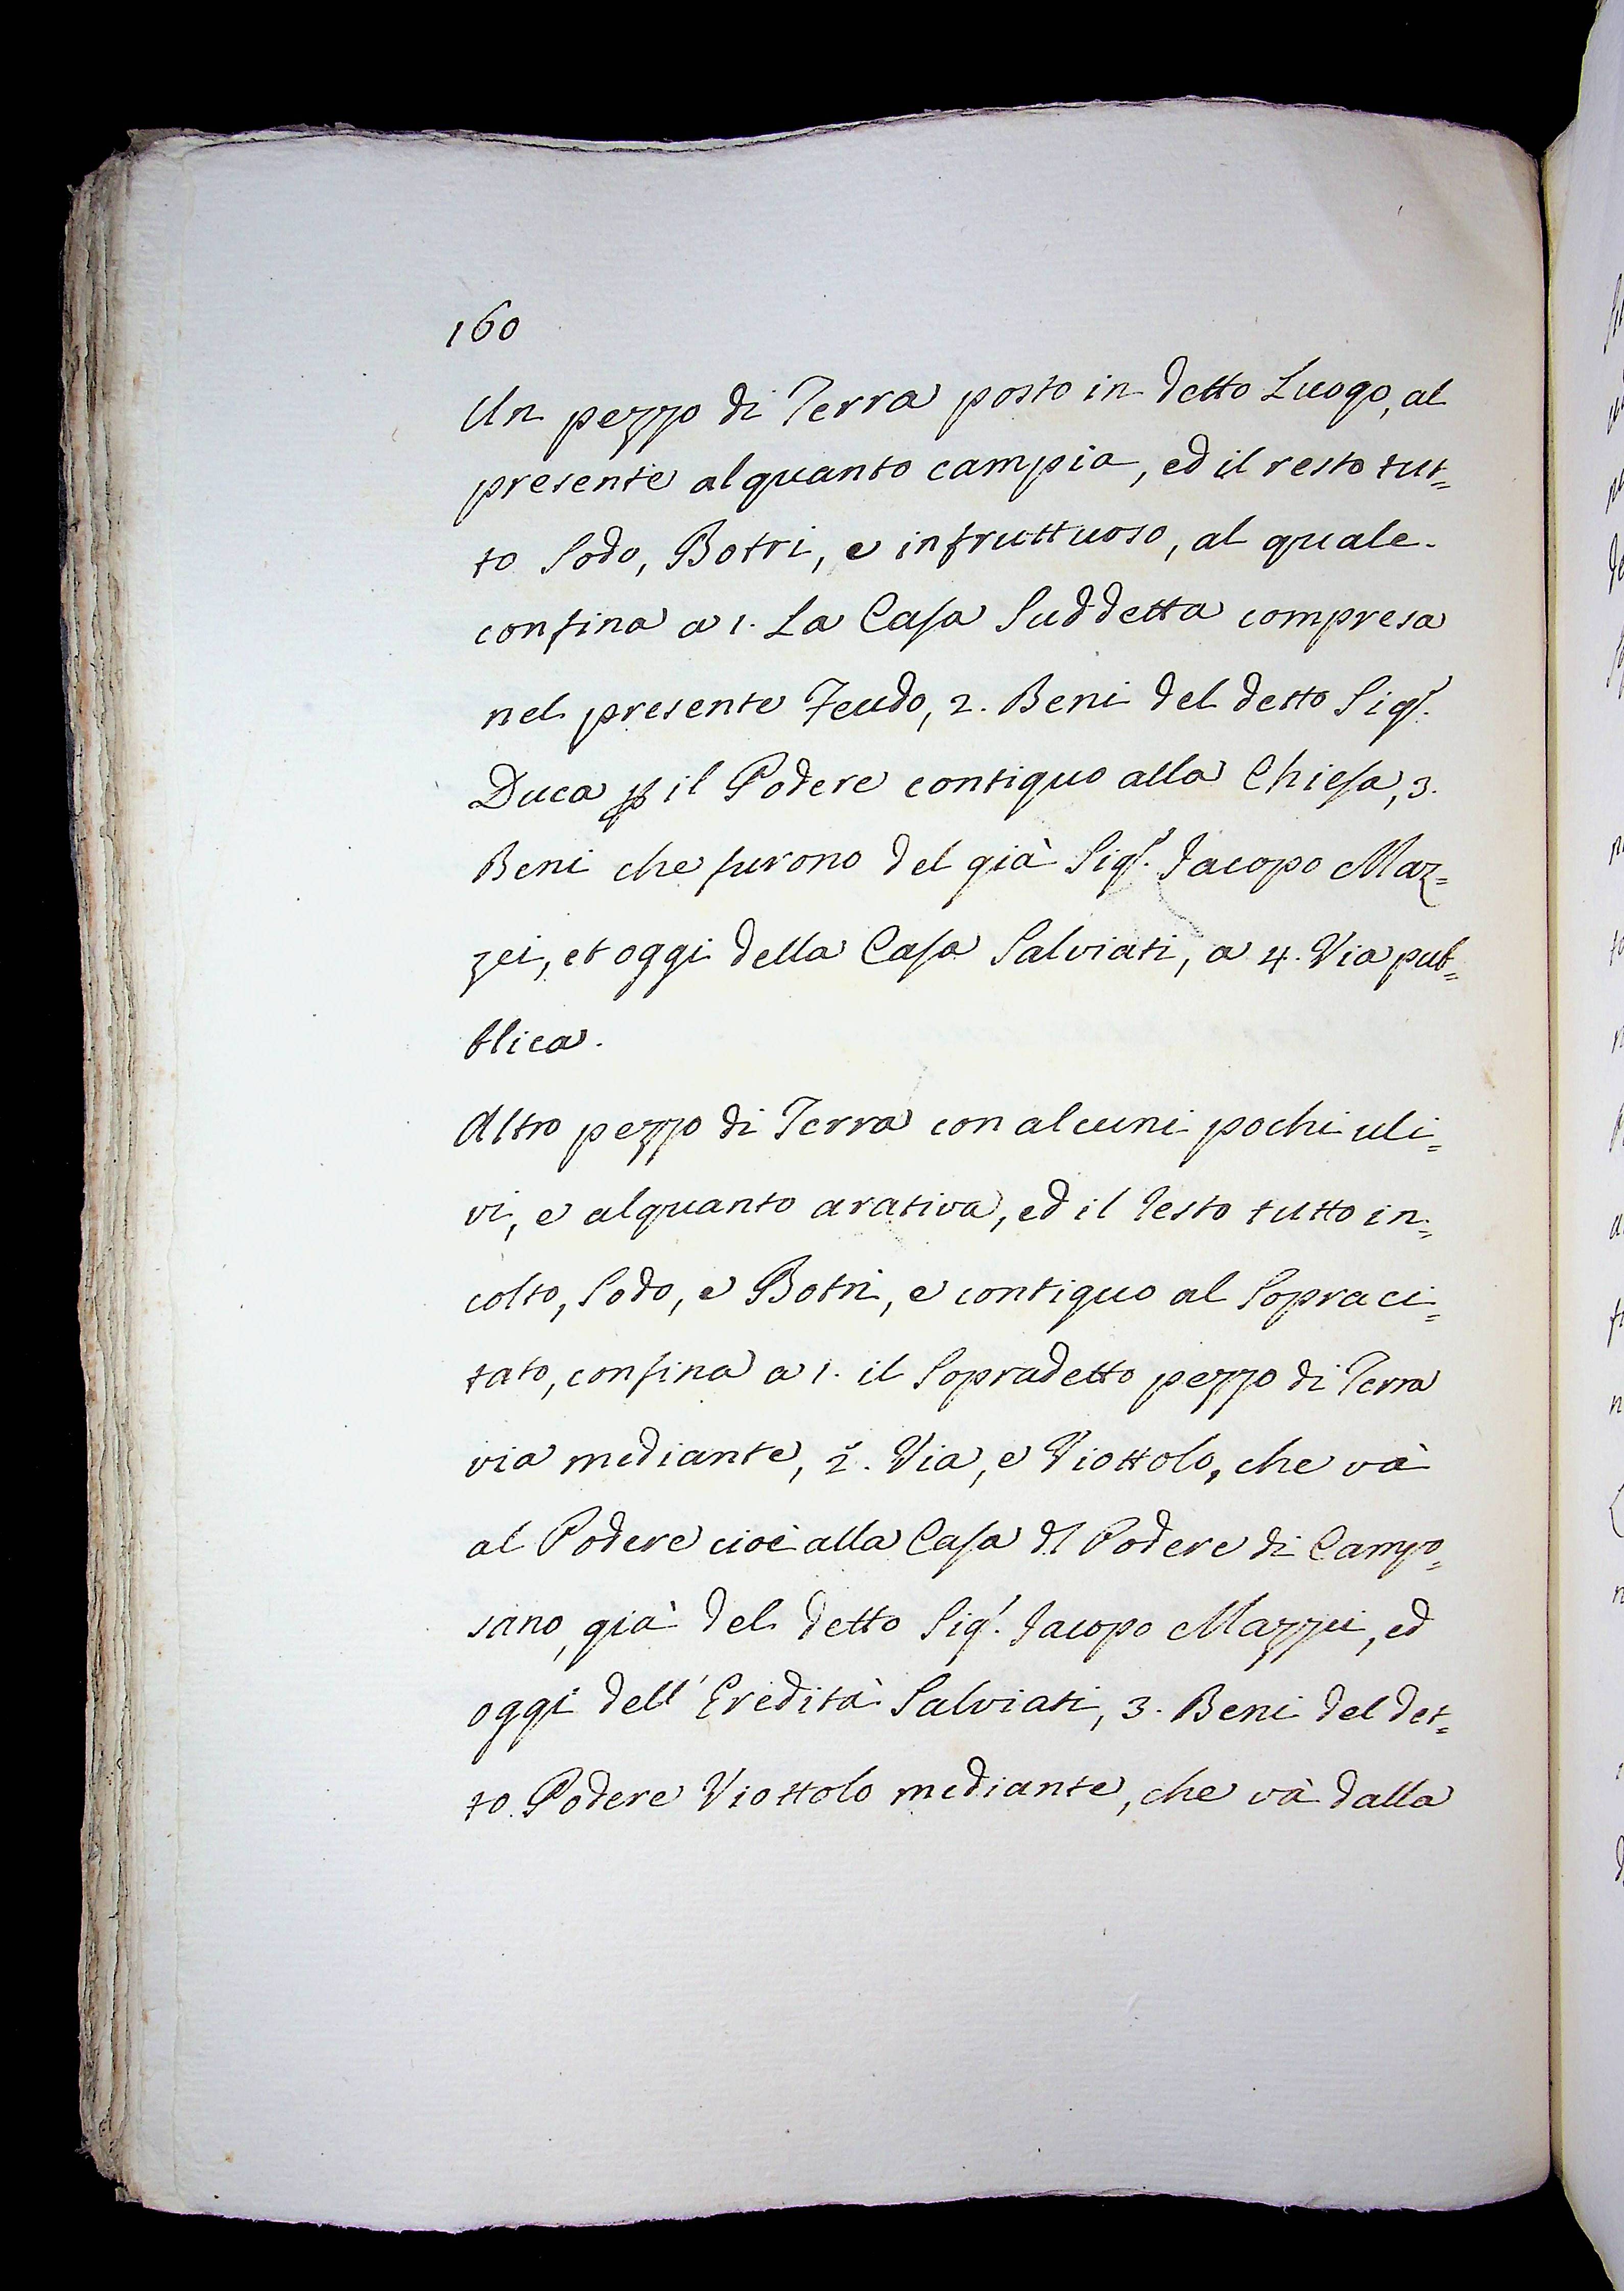 160
Un pezzo di Terra posto in detto Luogo, al
presente alquanto campia, ed il resto tut=
to Sodo, Botri, e infruttuoso, al quale
confina a 1. La Casa Suddetta compresa
nel presente Feudo, 2. Beni del detto Sig.r
Duca p il Podere contiguo alla Chiesa, 3.
Beni che furono del già Sig.r Jacopo Maz=
zei, et oggi della Casa Salviati, a 4. Via pub=
blica.
Altro pezzo di Terra con alcuni pochi uli=
vi, e alquanto arativa, ed il resto tutto in=
colto, Sodo, e Botri, e contiguo al Sopraci=
tato, confina a 1. il Sopradetto pezzo di Terra
via mediante, 2. Via, e Viottolo, che và
al Podere cioè alla Casa dl Podere di Campo=
sano, già del detto Sig.r Jacopo Mazzei, ed
oggi dell' Eredità Salviati, 3. Beni del det=
to Podere Viottolo mediante, che và dalla